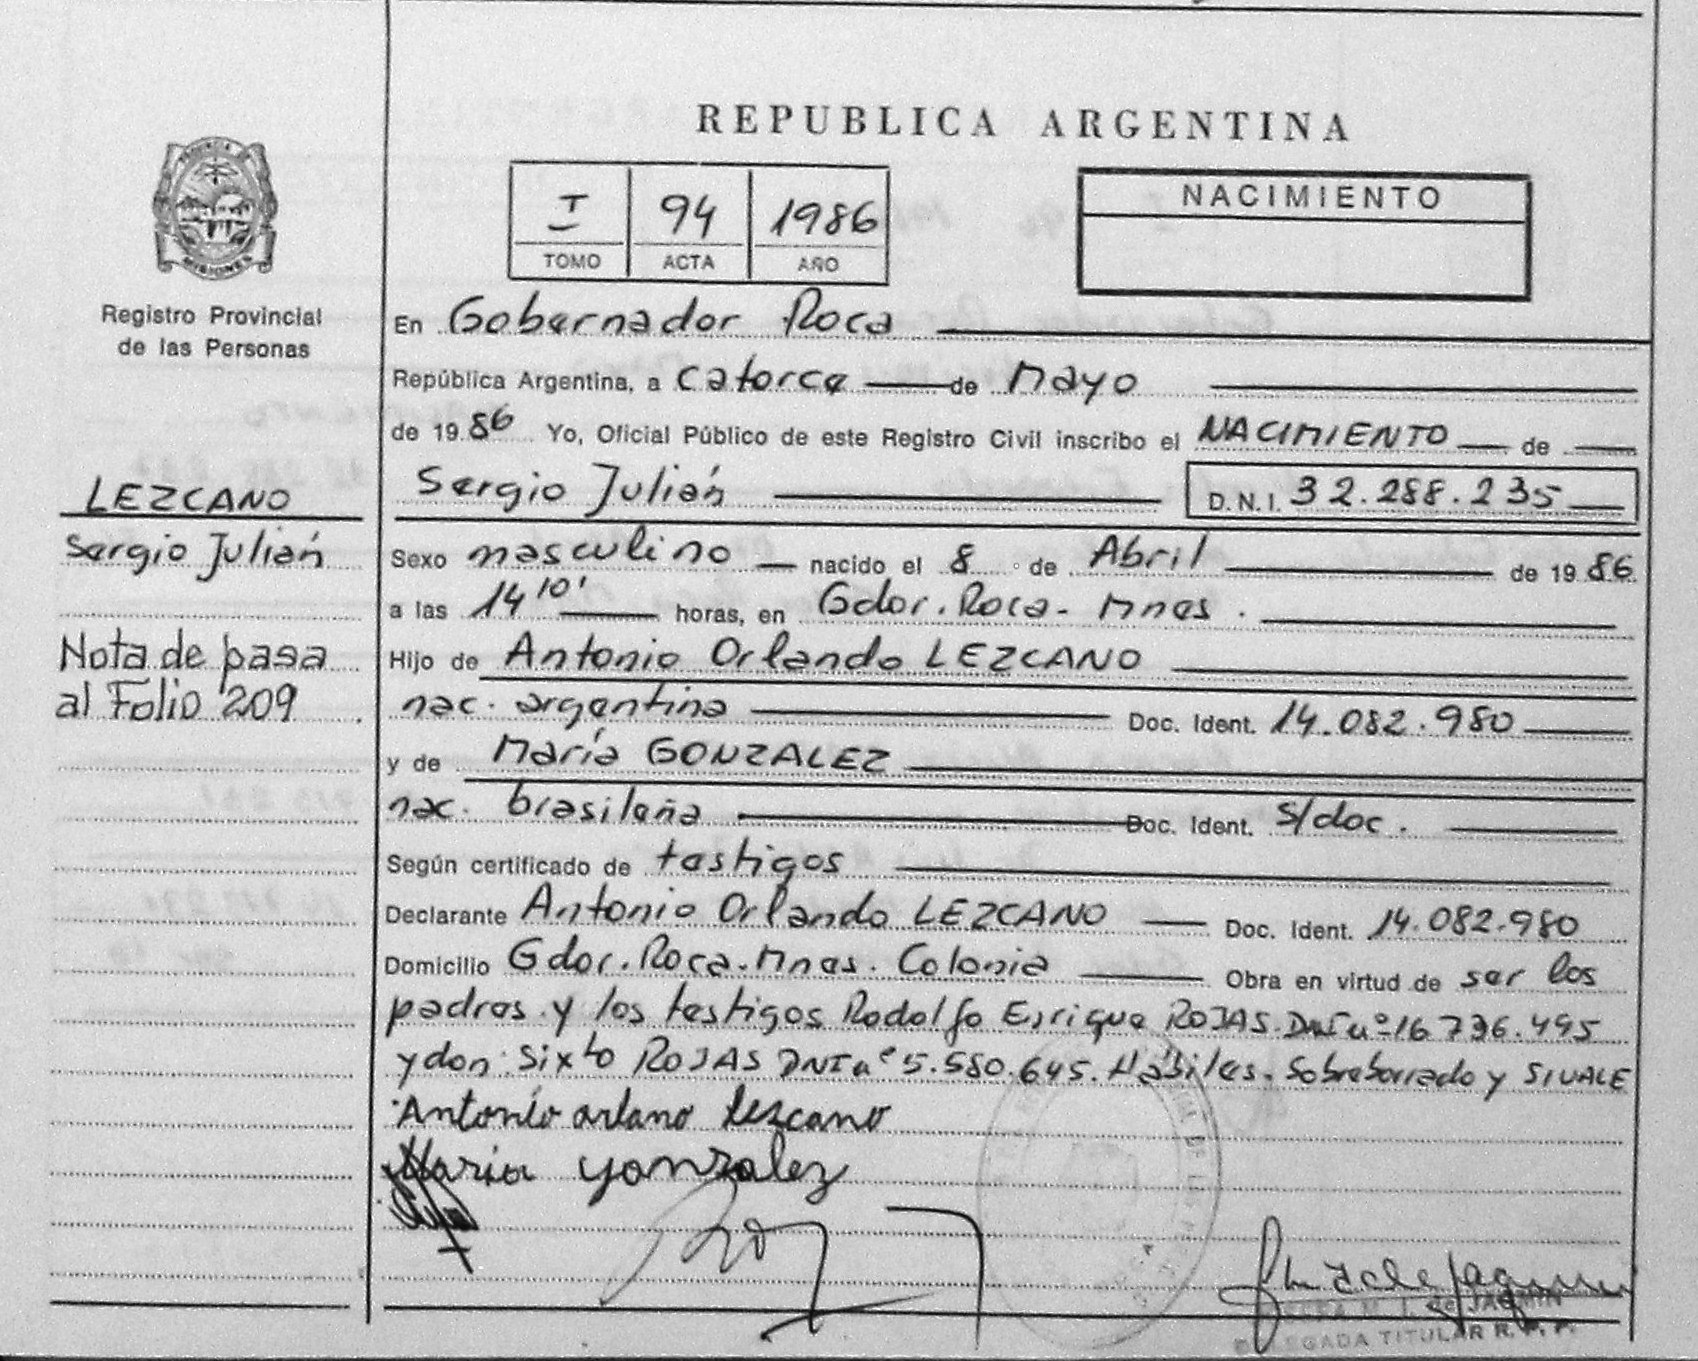 REPUBLICA ARGENTINA
MISIONES
Registro Provincial
de las Personas
I 94 1986
TOMO ACTA AÑO
NACIMIENTO
En Gobernador Roca
República Argentina, a catorce de Mayo
de 1986 Yo, Oficial Público de este Registro Civil inscribo el NACIMIENTO de
Sergio Julián D.N.I. 32.288.235
LEZCANO
Sergio Julián
Sexo masculino nacido el 8 de Abril de 1986
a las 14 10' horas, en Gdor. Roca - Mnes.
Nota de pasa
al Folio 209
Hijo de Antonio Orlando LEZCANO
nac. argentina Doc. Ident. 14.082.980
y de María GONZALEZ
nac. brasileña Doc. Ident. s/doc.
Según certificado de testigos
Declarante Antonio Orlando LEZCANO Doc. Ident. 14.082.980
Domicilio Gdor. Roca. Mnes. Colonia Obra en virtud de ser los
padres y los testigos Rodolfo Enrique ROJAS. DNI nº 16.736.495
y don: Sixto ROJAS DNI nº 5.580.645. Hábiles. Sobreborrado y SI VALE
Antonio orlano lezcano
Maria gonzalez
M. J. de JAQMIN
DELEGADA TITULAR R. P. P.